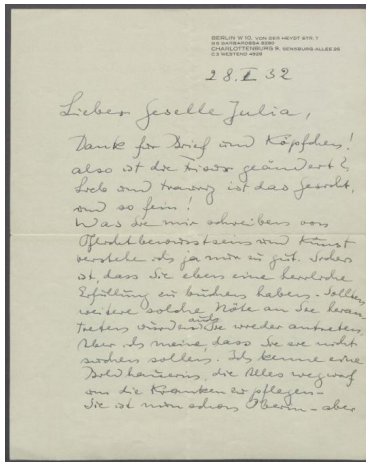 BERLIN W 10, VON DER HEYDT STR. 7
B 5 BARBAROSSA 5290
CHARLOTTENBURG 9, SENSBURG-ALLEE 26
C 3 WESTEND 4929
28. I 32
Lieber Geselle Julia,
Dank für Brief und Köpfchen!
also ist die Frisur geändert?
Lieb und traurig ist das Gesicht,
und so fein!
Was Sie mir schreiben von
Pflichtbewusstsein und Kunst
verstehe ich ja nur zu gut. Sicher
ist, dass Sie eben eine herrliche
Erfüllung zu buchen haben. Sollten
weitere solche Nöte an Sie heran
treten würden Sie auch wieder antreten,
Aber ich meine, dass Sie sie nicht
suchen sollen. Ich kenne eine
Bildhauerin, die Alles wegwarf
um die Kranken zu pflegen –
Sie ist nun schon Oberin – aber